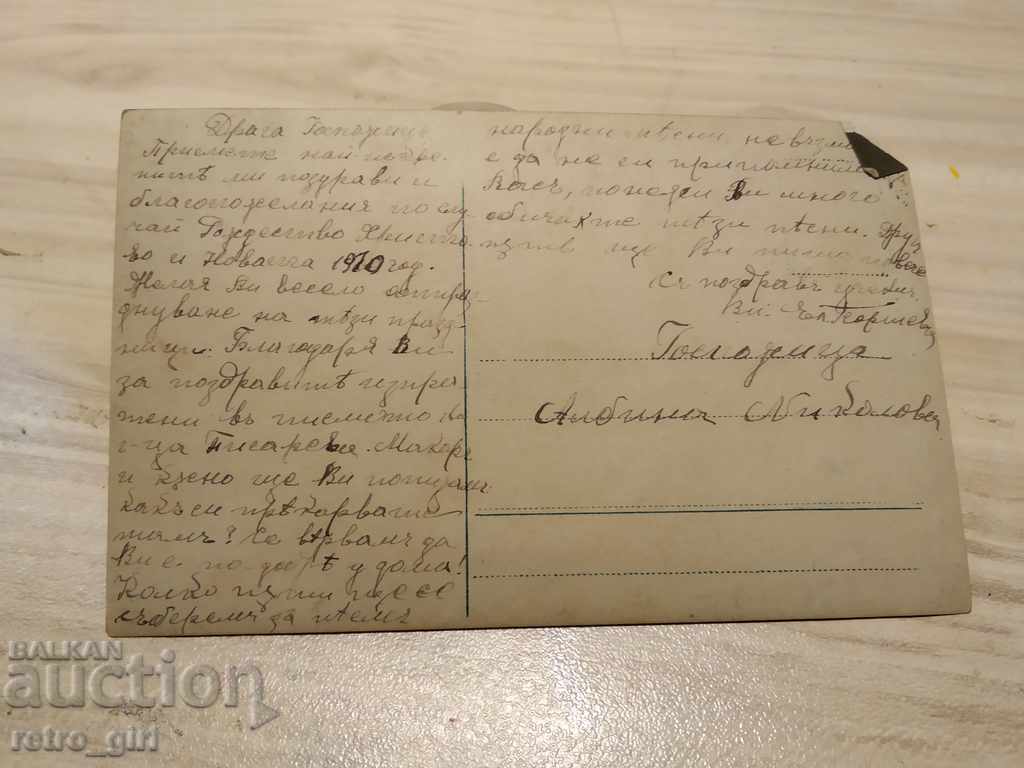 Драга Госпожице
Приемѣте най-искре-
нитѣ ми поздрави и
благопожелания по слу-
чай Рождество Христо-
во и Новата 1910 год.
Желая Ви весело отпраз-
днуване на тѣзи празд-
ници. Благодаря Ви
за поздравитѣ изпра-
тени въ писмото на
г-ца Писарева. Макаръ
и късно ще Ви попитамъ
какъ си прѣкарвате
тамъ? Се вѣрвамъ да
Ви е по-добрѣ у дома!
Колко пъти щесе
съберемъ да пѣемъ
народни пѣсни, невъзмо
е да не си припомнимъ
Васъ, понеже Ви много
обичахте тѣзи пѣсни. Друг
пътъ ще Ви пиша повече
Съ поздравъ ученич.
Ви:
Госпожица
Албина Николова
BALKAN
auction
retro_girl